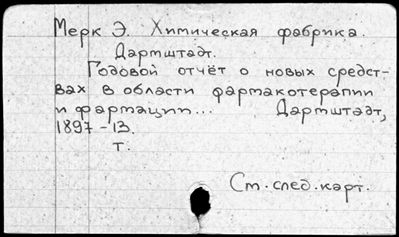 Мерк Э. Химическая фабрика.
Дармштадт.
Годовой отчёт о новых средст-
вах в области фармакотерапии
и фармации... Дармштадт,
1897-13.
т.
См. след. карт.